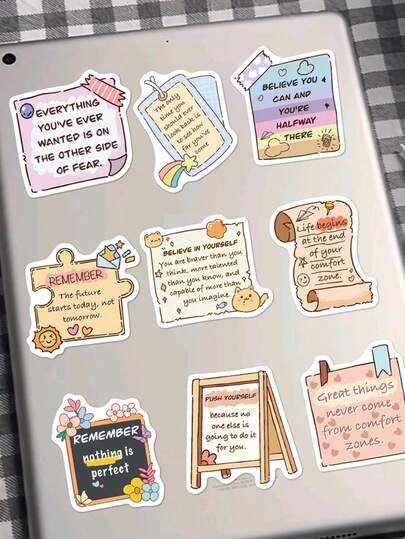 EVERYTHING
YOU'VE EVER
WANTED IS ON
THE OTHER SIDE
OF FEAR.
The only
time you
should ever
look back is
to see how
far you've
come
BELIEVE YOU
CAN AND
YOU'RE
HALFWAY
THERE
REMEMBER
The future
starts today, not
tomorrow.
BELIEVE IN YOURSELF
You are braver than you
think, more talented
than you know, and
capable of more than
you imagine.
Life begins
at the end
of your
comfort
zone.
REMEMBER
nothing is
perfect
PUSH YOURSELF
because no
one else is
going to do it
for you.
Great things
never come
from comfort
zones.